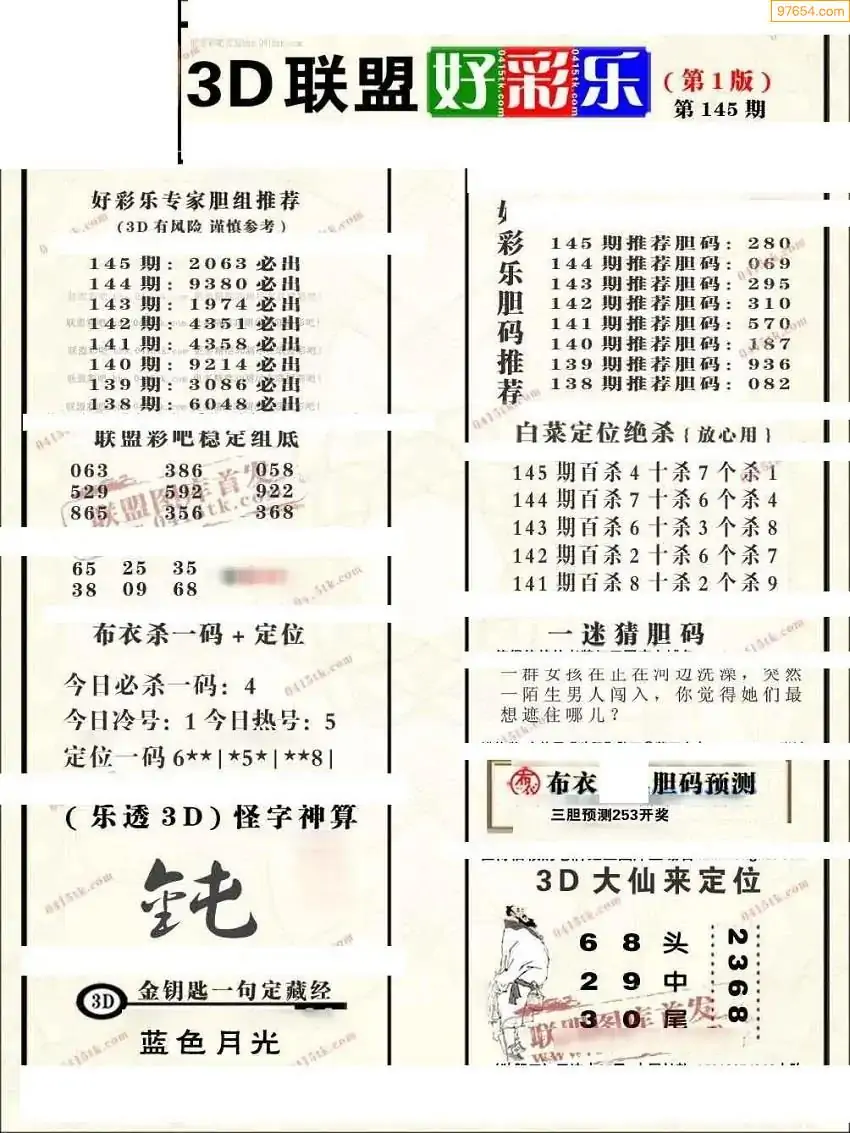 97654.com
3D联盟好彩乐
(第1版)
第 145 期
好彩乐专家胆组推荐
(3D有风险 谨慎参考)
145期: 2063必出
144期: 9380必出
143期: 1974必出
142期: 4351必出
141期: 4358必出
140期: 9214必出
139期: 3086必出
138期: 6048必出
联盟彩吧稳定组底
063 386 058
529 592 922
865 356 368
65 25 35
38 09 68
布衣杀一码+定位
今日必杀一码: 4
今日冷号: 1 今日热号: 5
定位一码 6**|*5*|**8|
(乐透3D)怪字神算
3D 金钥匙一句定藏经
蓝色月光
好彩乐胆码推荐
145期推荐胆码: 280
144期推荐胆码: 069
143期推荐胆码: 295
142期推荐胆码: 310
141期推荐胆码: 570
140期推荐胆码: 187
139期推荐胆码: 936
138期推荐胆码: 082
白菜定位绝杀{放心用}
145期百杀4十杀7个杀1
144期百杀7十杀6个杀4
143期百杀6十杀3个杀8
142期百杀2十杀6个杀7
141期百杀8十杀2个杀9
一迷猜胆码
一群女孩在正在河边洗澡，突然
一陌生男人闯入，你觉得她们最
想遮住哪儿？
布衣 胆码预测
三胆预测253开奖
3D大仙来定位
6 8 头
2 9 中
3 0 尾
2368
联盟图库首发
0415tk.com